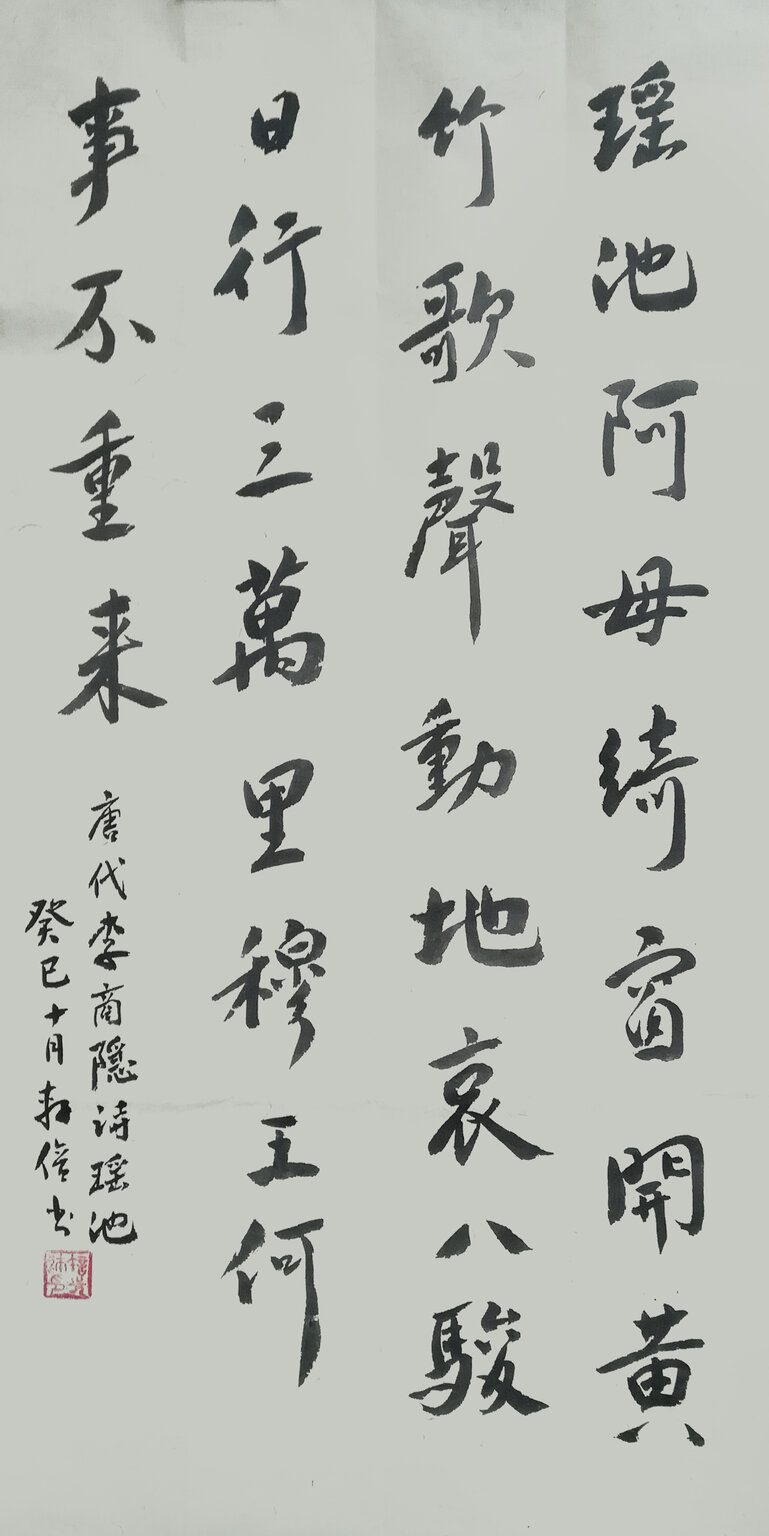 瑶池阿母绮窗開黄
竹歌聲動地哀八駿
日行三萬里穆王何
事不重来
唐代李商隐诗瑶池
癸巳十月
书